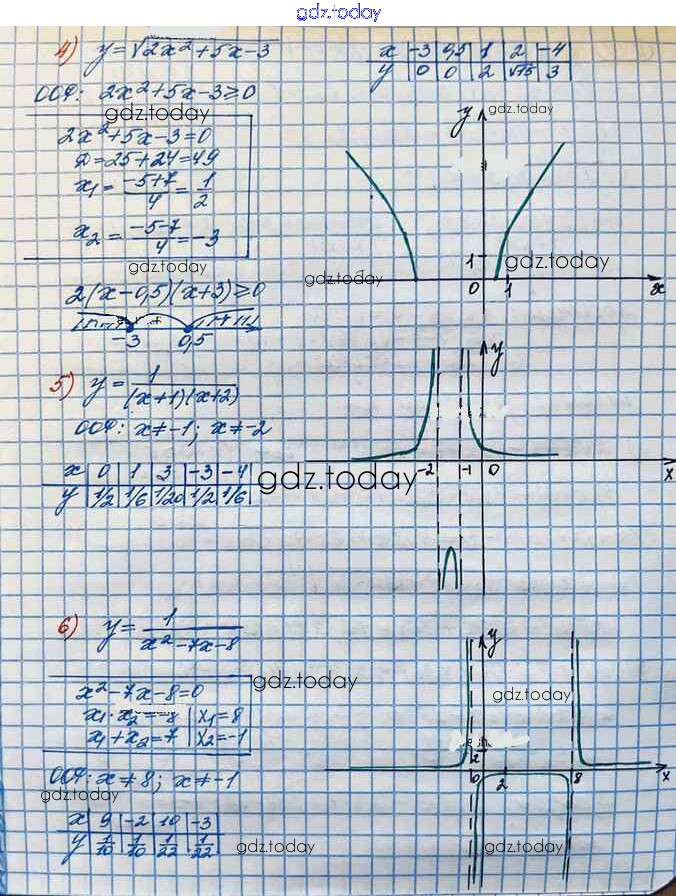 gdz.today
4) y=√2x²+5x-3
x | -3 | 0,5 | 1 | 2 | -4
y | 0 | 0 | 2 | √15 | 3
ООФ: 2x²+5x-3≥0
gdz.today
gdz.today
2x²+5x-3=0
D=25+24=49
x₁= -5+7/4 = 1/2
x₂= -5-7/4 = -3
gdz.today
y
1
0 1 x
gdz.today
gdz.today
2(x-0,5)(x+3)≥0
-3 0,5
5) y= 1/(x+1)(x+2)
ООФ: x≠-1; x≠-2
x | 0 | 1 | 3 | -3 | -4
y | 1/2 | 1/6 | 1/20 | 1/2 | 1/6
gdz.today
y
-2 -1 0 x
6) y= 1/x²-7x-8
gdz.today
x²-7x-8=0
x₁·x₂=-8 | x₁=8
x₁+x₂=7 | x₂=-1
ООФ: x≠8; x≠-1
gdz.today
x | 9 | -2 | 10 | -3
y | 1/10 | 1/10 | 1/22 | 1/22
gdz.today
y
gdz.today
2
0 2 8 x
gdz.today